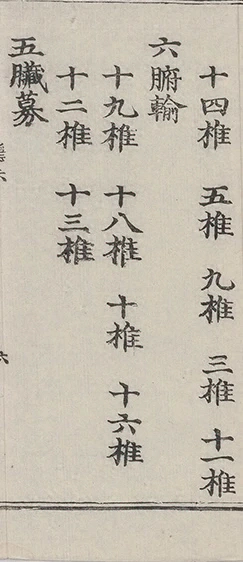 十四椎 五椎 九椎 三椎 十一椎
六腑輸
十九椎 十八椎 十椎 十六椎
十二椎 十三椎
五臟募
六